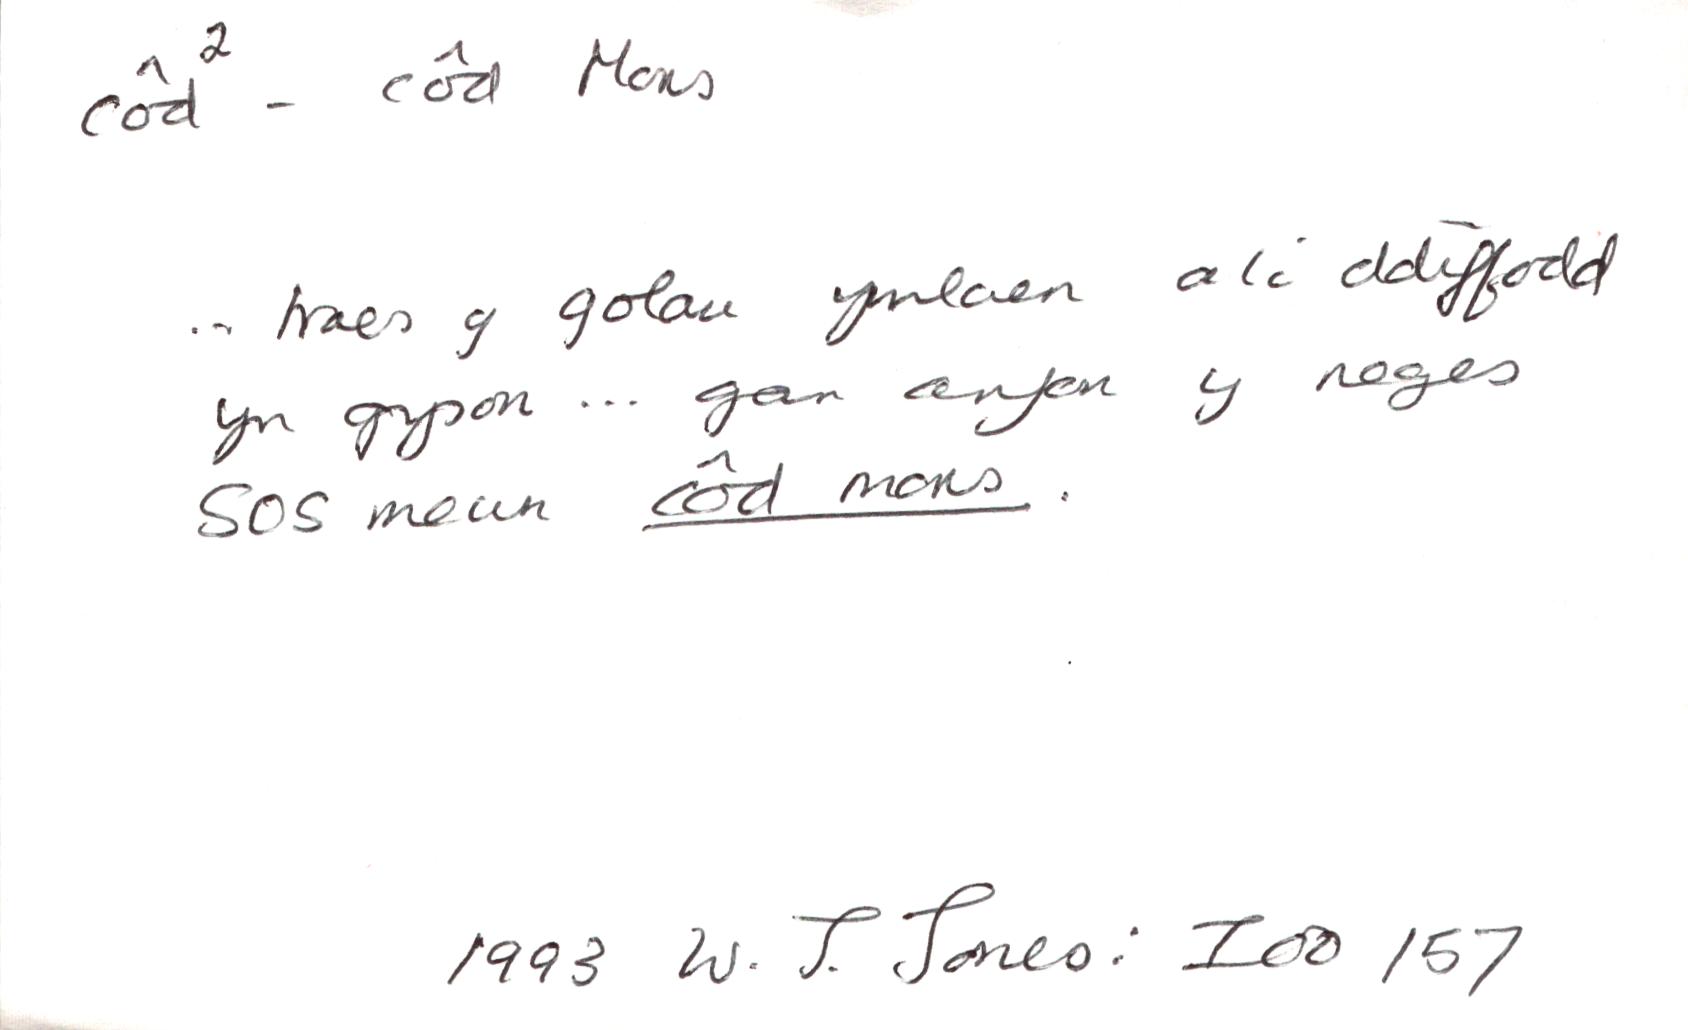 côd² - côd Mors
... troes y golau ymlaen a'i ddiffodd
yn gyson ... gan anfon y neges
SOS mewn côd mors.
1993 W. J. Jones: Ioo 157